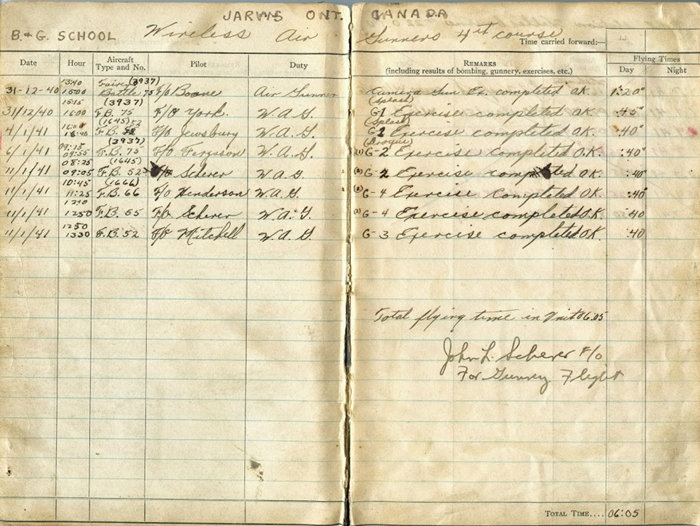 JARVIS ONT. CANADA
B.&G. SCHOOL Wireless Air Gunners 4th course
Time carried forward:—
Date Hour Aircraft Type and No. Pilot Duty REMARKS (including results of bombing, gunnery, exercises, etc.) Flying Times Day Night
31-12-40 1340 1500 Fairey (3937) Battle 75 F/O Boone Air Gunner Camera Gun Ex. completed OK 1:20
31/12/40 1515 1600 (3937) F.B. 75 F/O York W.A.G. (Splash) G1 Exercise completed OK. :45
4/1/41 (1645) F.B. F/O Jewsbury W.A.G. (Splash) Exercise completed OK. :40
6/1/41 09:15 09:55 (3937) F.B. 75 F/O Ferguson W.A.G. (Drogue) G-2 Exercise completed O.K. :40
11/1/41 08:25 09:05 (1645) F.B. 52 F/O Scherer W.A.G G-2 Exercise completed OK. :40
11/1/41 10:45 11:25 (1666) F.B. 66 F/O Henderson W.A.G. G-4 Exercise completed OK. :40
11/1/41 1210 1250 F.B. 65 F/O Scherer W.A.G. G-4 Exercise completed O.K. :40
11/1/41 1250 1330 F.B. 52 F/O Mitchell W.A.G. G-3 Exercise completed O.K. :40
Total flying time in Unit 06:05
John L. Scherer F/O
For Gunnery Flight
TOTAL TIME.... 06:05